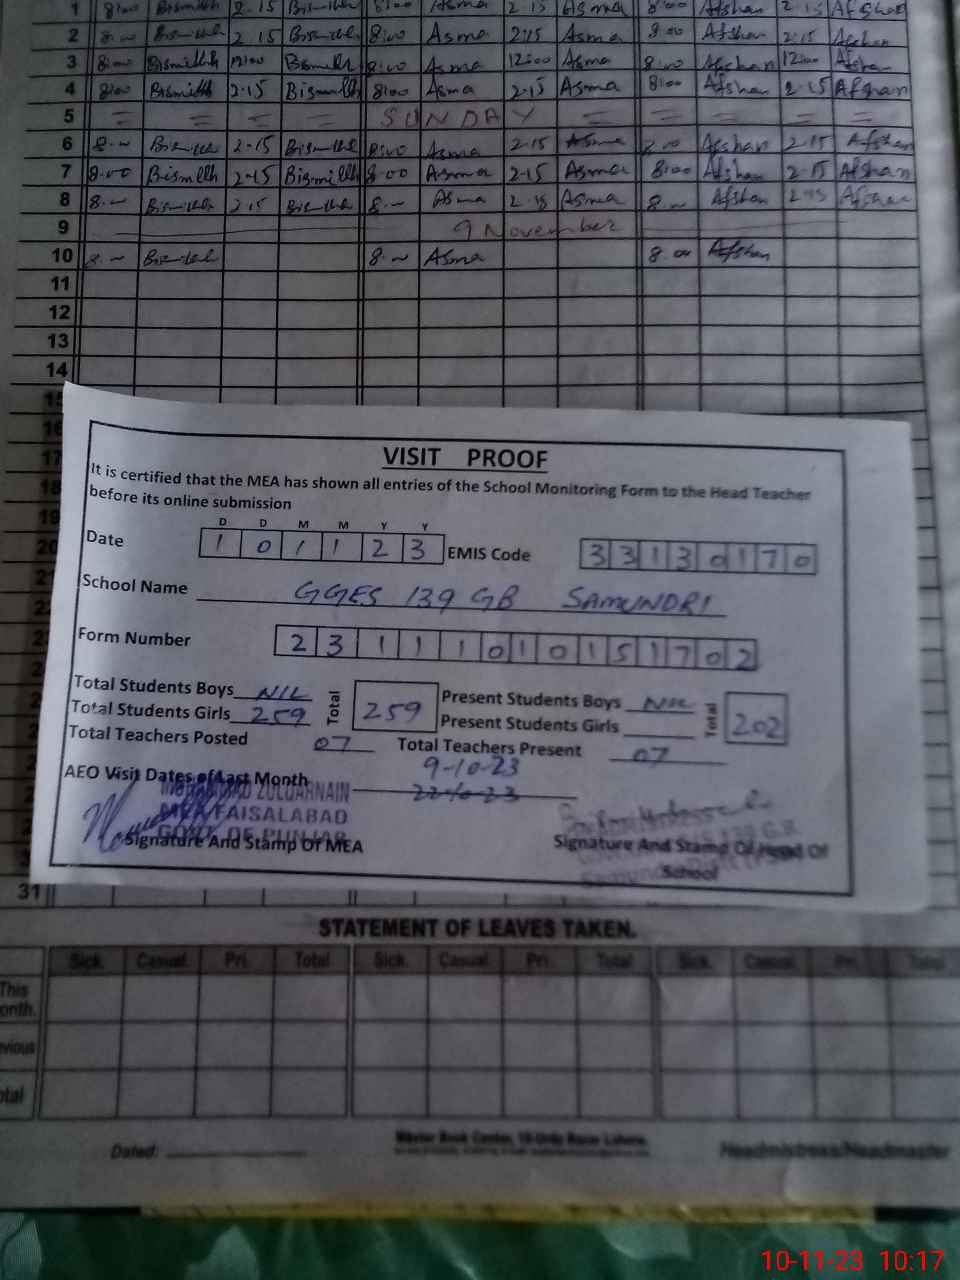 1 8:00 Bismillh 2.15 Bismillh 8:00 Asma 2.15 Asma 8:00 Afshan 2.15 Afshan
2 8:00 Bismillh 2.15 Bismillh 8:00 Asma 2:15 Asma 8:00 Afshan 2:15 Afshan
3 8:00 Bismillh 12:00 Bismillh 8:00 Asma 12:00 Asma 8:00 Afshan 12:00 Afshan
4 8:00 Bismillh 2.15 Bismillh 8:00 Asma 2.15 Asma 8:00 Afshan 2.15 Afshan
5 = = = = SUNDAY = = = = =
6 8. Bismillh 2-15 Bismillh 8:00 Asma 2.15 Asma 8:00 Afshan 2.15 Afshan
7 8.00 Bismillh 2-15 Bismillh 8.00 Asma 2-15 Asma 8:00 Afshan 2.15 Afshan
8 8. Bismillh 2.15 Bismillh 8. Asma 2.15 Asma 8. Afshan 2.15 Afshan
9 9 November
10 8. Bismillh 8. Asma 8.00 Afshan
11
12
13
14
15
16
17
18
19
20
31
VISIT PROOF
It is certified that the MEA has shown all entries of the School Monitoring Form to the Head Teacher
before its online submission
D D M M Y Y
Date 1 0 1 1 2 3 EMIS Code 3 3 1 3 0 1 7 0
School Name GGES 139 GB SAMUNDRI
Form Number 2 3 1 1 1 0 1 0 1 5 1 7 0 2
Total Students Boys NIL Total 259 Present Students Boys NIL Total 202
Total Students Girls 259 Present Students Girls
Total Teachers Posted 07 Total Teachers Present 07
AEO Visit Dates of Last Month 9-10-23
22-10-23
MUHAMMAD ZULQARNAIN
MEA FAISALABAD
GOVT. OF PUNJAB
Signature And Stamp Of MEA
Signature And Stamp Of Head Of
School
STATEMENT OF LEAVES TAKEN.
Sick. Casual. Pri. Total Sick. Casual. Pri. Total Sick. Casual. Pri. Total
This
onth.
vious
otal
Dated:
Master Book Center, 18-Urdu Bazar Lahore.
Headmistress/Headmaster
10-11-23 10:17